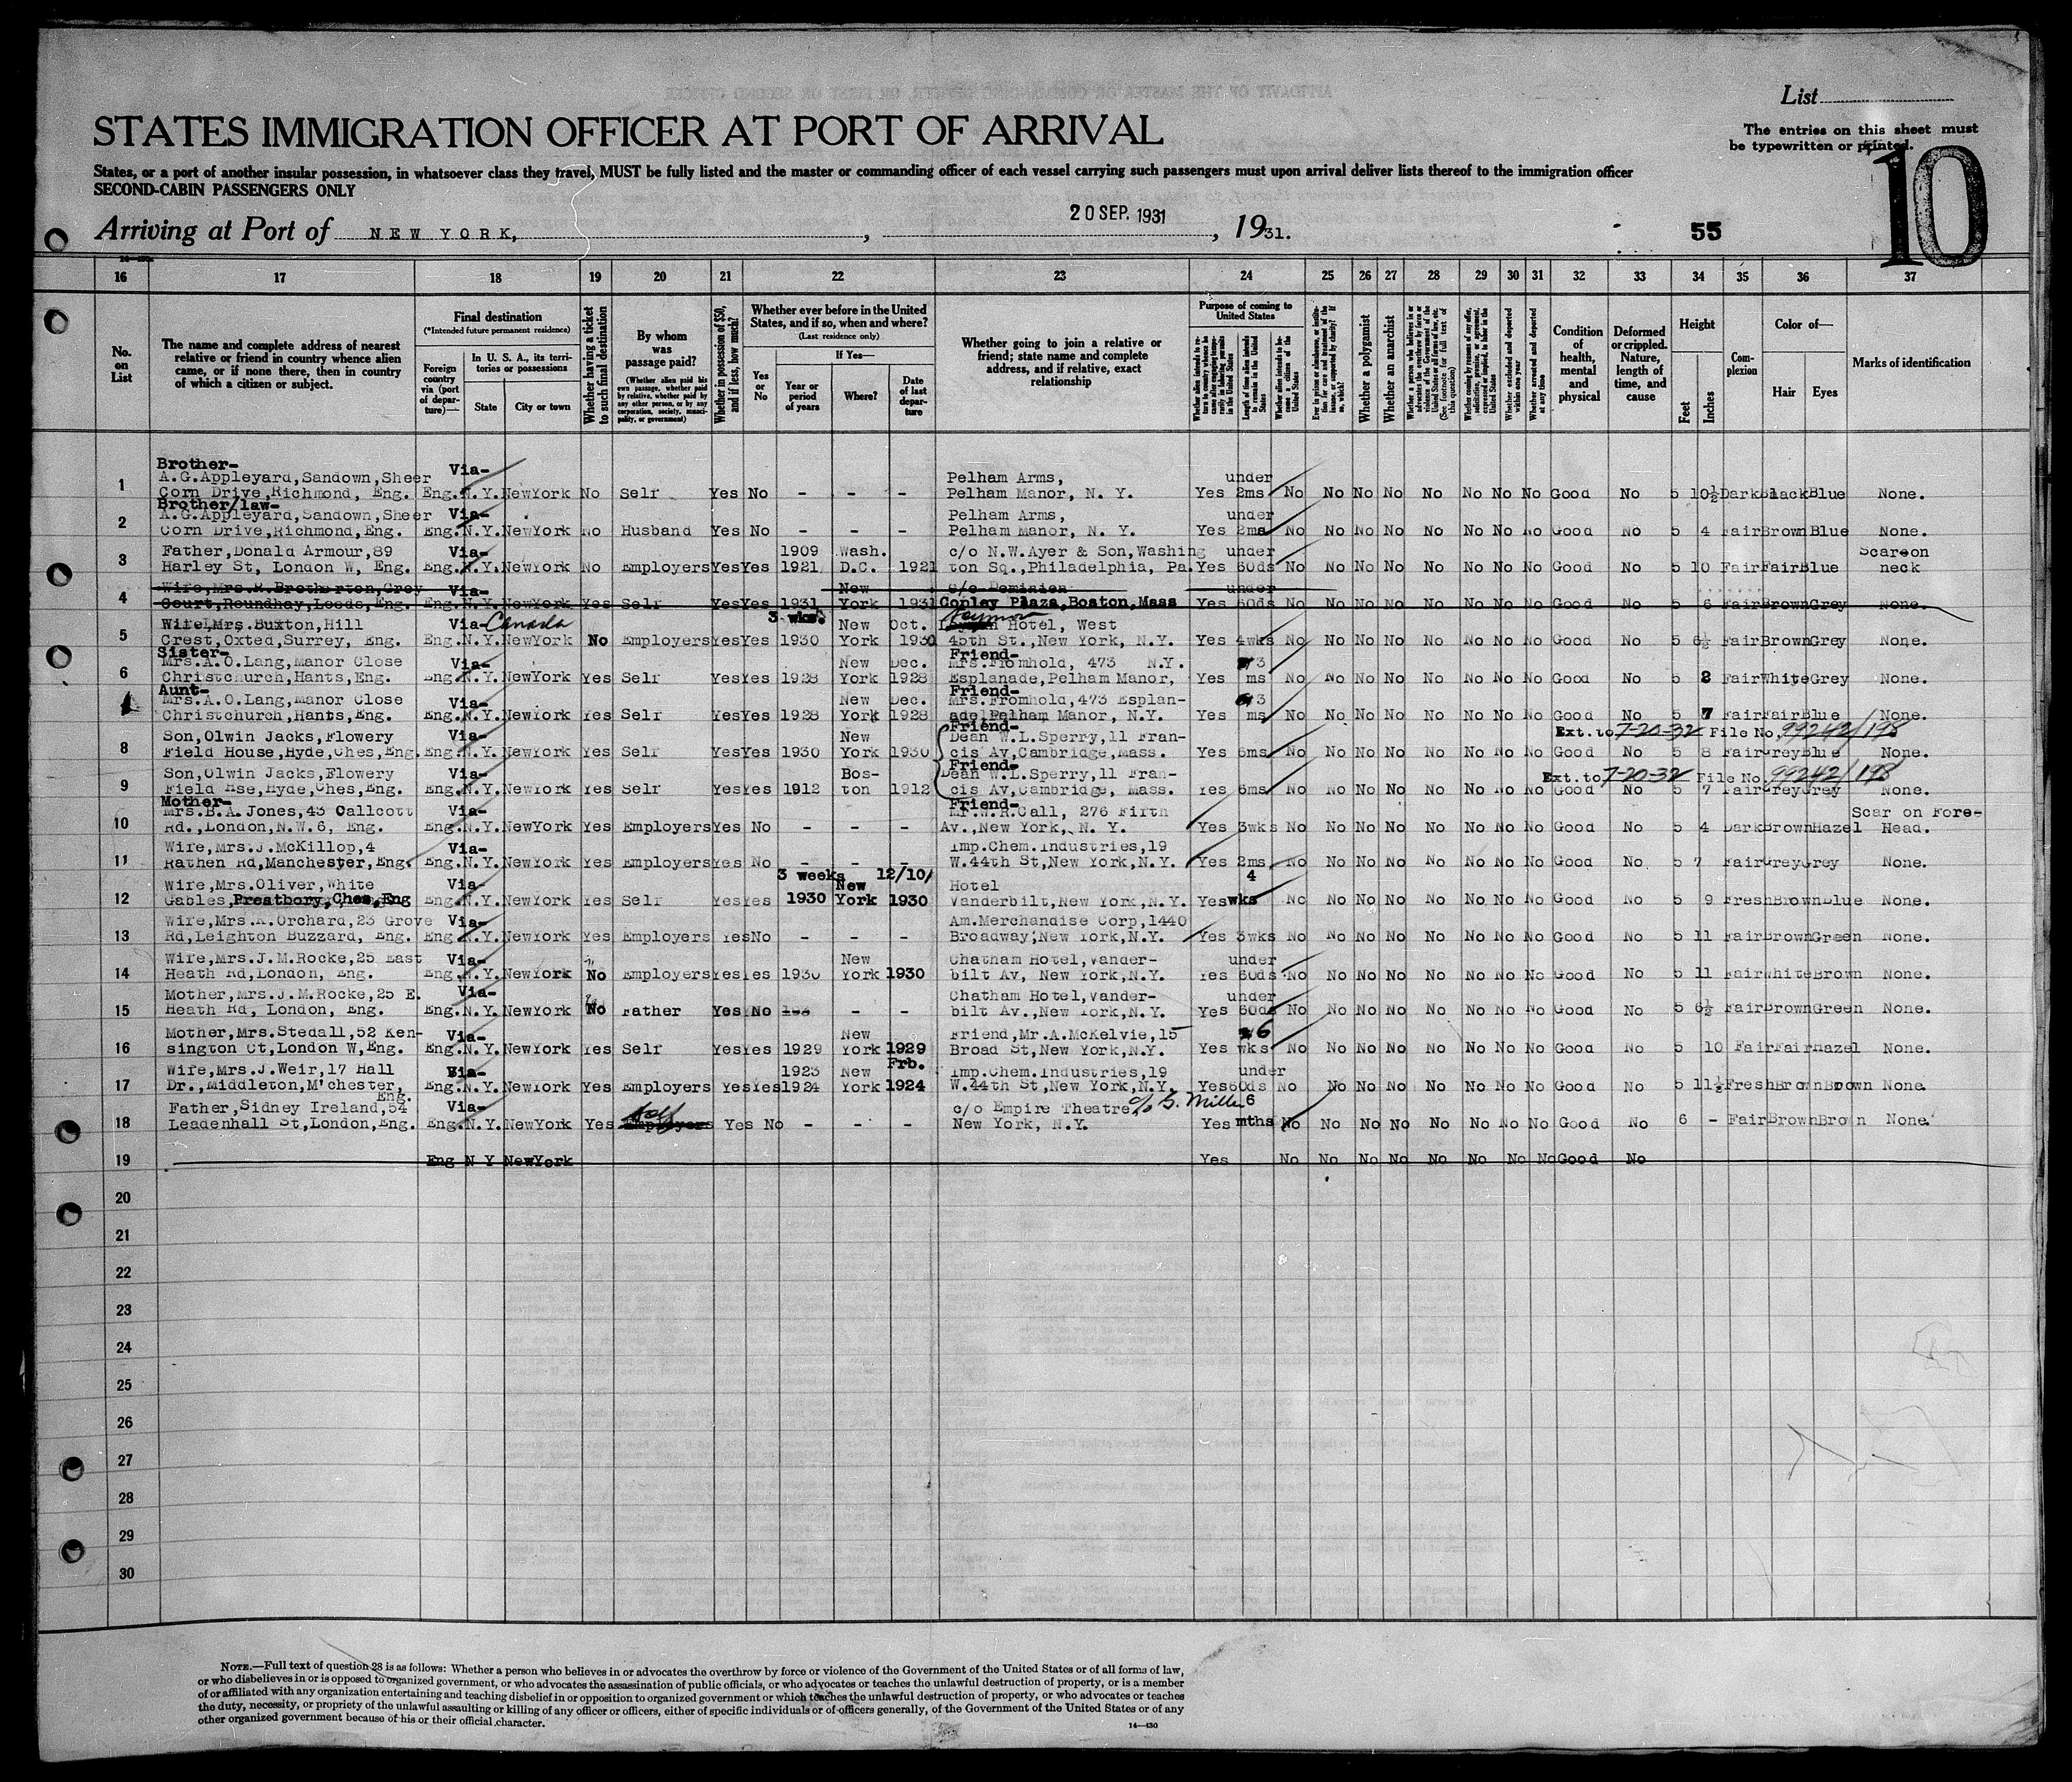 List
STATES IMMIGRATION OFFICER AT PORT OF ARRIVAL
The entries on this sheet must
be typewritten or printed.
10
States, or a port of another insular possession, in whatsoever class they travel, MUST be fully listed and the master or commanding officer of each vessel carrying such passengers must upon arrival deliver lists thereof to the immigration officer
SECOND-CABIN PASSENGERS ONLY
Arriving at Port of NEW YORK, , 20 SEP. 1931 , 1931.
55
16 17 18 19 20 21 22 23 24 25 26 27 28 29 30 31 32 33 34 35 36 37
No. on List
The name and complete address of nearest relative or friend in country whence alien came, or if none there, then in country of which a citizen or subject.
Final destination
(*Intended future permanent residence)
Foreign country via (port of departure)—
In U. S. A., its territories or possessions
State
City or town
Whether having a ticket to such final destination
By whom was passage paid?
(Whether alien paid his own passage, whether paid by relative, whether paid by any other person, or by any corporation, society, municipality, or government)
Whether in possession of $50, and if less, how much?
Whether ever before in the United States, and if so, when and where?
(Last residence only)
Yes or No
If Yes—
Year or period of years
Where?
Date of last departure
Whether going to join a relative or friend; state name and complete address, and if relative, exact relationship
Purpose of coming to United States
Length of time alien intends to remain in the United States
Whether alien intends to become a citizen of the United States
Whether a polygamist
Whether an anarchist
Whether excluded and deported within one year
Whether arrested and deported at any time
Condition of health, mental and physical
Deformed or crippled. Nature, length of time, and cause
Height
Feet
Inches
Complexion
Color of—
Hair
Eyes
Marks of identification
Brother- Via-
A.G.Appleyard,Sandown,Sheer Pelham Arms, under
1 Corn Drive,Richmond, Eng. Eng. N.Y. NewYork No Self Yes No - - - Pelham Manor, N. Y. Yes 2ms No No No No No No No No Good No 5 10½ Dark Black Blue None.
Brother/law- Via-
A.G.Appleyard,Sandown,Sheer Pelham Arms, under
2 Corn Drive,Richmond, Eng. Eng. N.Y. NewYork No Husband Yes No - - - Pelham Manor, N. Y. Yes 2ms No No No No No No No No Good No 5 4 Fair Brown Blue None.
Father,Donald Armour,89 Via- 1909 Wash. c/o N.W.Ayer & Son,Washing under Scar on
3 Harley St, London W, Eng. Eng. N.Y. NewYork No Employers Yes Yes 1921 D.C. 1921 ton Sq.,Philadelphia, Pa. Yes 60ds No No No No No No No No Good No 5 10 Fair Fair Blue neck
Wife,Mrs.R.Brotherton,Grey Via- New c/o Dominion under
4 Court,Roundhay,Leeds,Eng. Eng. N.Y. NewYork Yes Self Yes Yes 1931 York 1931 Copley Plaza,Boston,Mass Yes 60ds No No No No No No No No Good No 5 6 Fair Brown Grey None.
Wife,Mrs.Buxton,Hill Via- Canada 3 wks. New Oct. Hotel, West
5 Crest,Oxted,Surrey, Eng. Eng. N.Y. NewYork No Employers Yes Yes 1930 York 1930 45th St.,New York, N.Y. Yes 4wks No No No No No No No No Good No 5 6½ Fair Brown Grey None.
Sister- Via- Friend-
Mrs.A.O.Lang,Manor Close New Dec. Mrs.Fromhold, 473 N.Y. 3
6 Christchurch,Hants,Eng. Eng. N.Y. NewYork Yes Self Yes Yes 1928 York 1928 Esplanade,Pelham Manor, Yes ms No No No No No No No No Good No 5 2 Fair White Grey None.
Aunt- Via- Friend-
Mrs.A.O.Lang,Manor Close New Dec. Mrs.Fromhold,473 Esplan- 3
Christchurch,Hants,Eng. Eng. N.Y. NewYork Yes Self Yes Yes 1928 York 1928 ade,Pelham Manor, N.Y. Yes ms No No No No No No No No Good No 5 7 Fair Fair Blue None.
Friend-
Son,Olwin Jacks,Flowery Via- New Dean W.L.Sperry,11 Fran- Ext. to 7-20-32 File No. 99242/198
8 Field House,Hyde,Ches,Eng. Eng. N.Y. NewYork Yes Self Yes Yes 1930 York 1930 cis Av,Cambridge, Mass. Yes 6ms No No No No No No No No Good No 5 8 Fair Grey Blue None.
Friend-
Son,Olwin Jacks,Flowery Via- Bos- Dean W.L.Sperry,11 Fran- Ext. to 7-20-32 File No. 99242/198
9 Field Hse,Hyde,Ches,Eng. Eng. N.Y. NewYork Yes Self Yes Yes 1912 ton 1912 cis Av,Cambridge, Mass. Yes 6ms No No No No No No No No Good No 5 7 Fair Grey Grey None.
Mother- Via- Friend-
Mrs.B.A.Jones,43 Callcott Mr.W.R.Call, 276 Fifth Scar on Fore-
10 Rd.,London,N.W.6, Eng. Eng. N.Y. NewYork Yes Employers Yes No - - - Av.,New York, N. Y. Yes 3wks No No No No No No No No Good No 5 4 Dark Brown Hazel Head.
Wife,Mrs.J.McKillop,4 Via- Imp.Chem.Industries,19
11 Rathen Rd,Manchester,Eng. Eng. N.Y. NewYork Yes Employers Yes No - - - W.44th St,New York,N.Y. Yes 2ms No No No No No No No No Good No 5 7 Fair Grey Grey None.
Wife,Mrs.Oliver,White Via- 3 weeks New 12/10/ Hotel 4
12 Gables,Prestbory,Ches,Eng Eng. N.Y. NewYork Yes Self Yes Yes 1930 York 1930 Vanderbilt,New York,N.Y. Yes wks No No No No No No No No Good No 5 9 Fresh Brown Blue None.
Wife,Mrs.A.Orchard,23 Grove Via- Am.Merchandise Corp,1440
13 Rd,Leighton Buzzard, Eng. Eng N.Y. NewYork Yes Employers Yes No - - - Broadway,New York,N.Y. Yes 3wks No No No No No No No No Good No 5 11 Fair Brown Green None.
Wife,Mrs.J.M.Rocke,25 East Via- New Chatham Hotel,Vander- under
14 Heath Rd,London, Eng. Eng. N.Y. NewYork No Employers Yes Yes 1930 York 1930 bilt Av, New York,N.Y. Yes 60ds No No No No No No No No Good No 5 11 Fair White Brown None.
Mother,Mrs.J.M.Rocke,25 E. Via- Chatham Hotel,Vander- under
15 Heath Rd, London, Eng. Eng. N.Y. NewYork No Father Yes No - - bilt Av.,New York,N.Y. Yes 60ds No No No No No No No No Good No 5 6½ Fair Brown Green None.
Mother,Mrs.Stedall,52 Ken- Via- New Friend,Mr.A.McKelvie,15 6
16 sington Ct,London W,Eng. Eng. N.Y. NewYork Yes Self Yes Yes 1929 York 1929 Broad St,New York,N.Y. Yes wks No No No No No No No No Good No 5 10 Fair Fair Hazel None.
Wife,Mrs.J.Weir,17 Hall Via- 1923 New Frb. Imp.Chem.Industries,19 under
17 Dr.,Middleton,M'chester, Eng. Eng. N.Y. NewYork Yes Employers Yes Yes 1924 York 1924 W.44th St,New York,N.Y. Yes 60ds No No No No No No No No Good No 5 11½ Fresh Brown Brown None.
Father,Sidney Ireland,54 Via- c/o Empire Theatre, c/o G. Miller 6
18 Leadenhall St,London,Eng. Eng. N.Y. NewYork Yes Self Employers Yes No - - - New York, N.Y. Yes mths No No No No No No No No Good No 6 - Fair Brown Brown None.
19 Eng N Y NewYork Yes No No No No No No No No Good No
20
21
22
23
24
25
26
27
28
29
30
NOTE.—Full text of question 28 is as follows: Whether a person who believes in or advocates the overthrow by force or violence of the Government of the United States or of all forms of law,
or who disbelieves in or is opposed to organized government, or who advocates the assassination of public officials, or who advocates or teaches the unlawful destruction of property, or is a member
of or affiliated with any organization entertaining and teaching disbelief in or opposition to organized government or which teaches the unlawful destruction of property, or who advocates or teaches
the duty, necessity, or propriety of the unlawful assaulting or killing of any officer or officers, either of specific individuals or of officers generally, of the Government of the United States or of any
other organized government because of his or their official character.
14—430